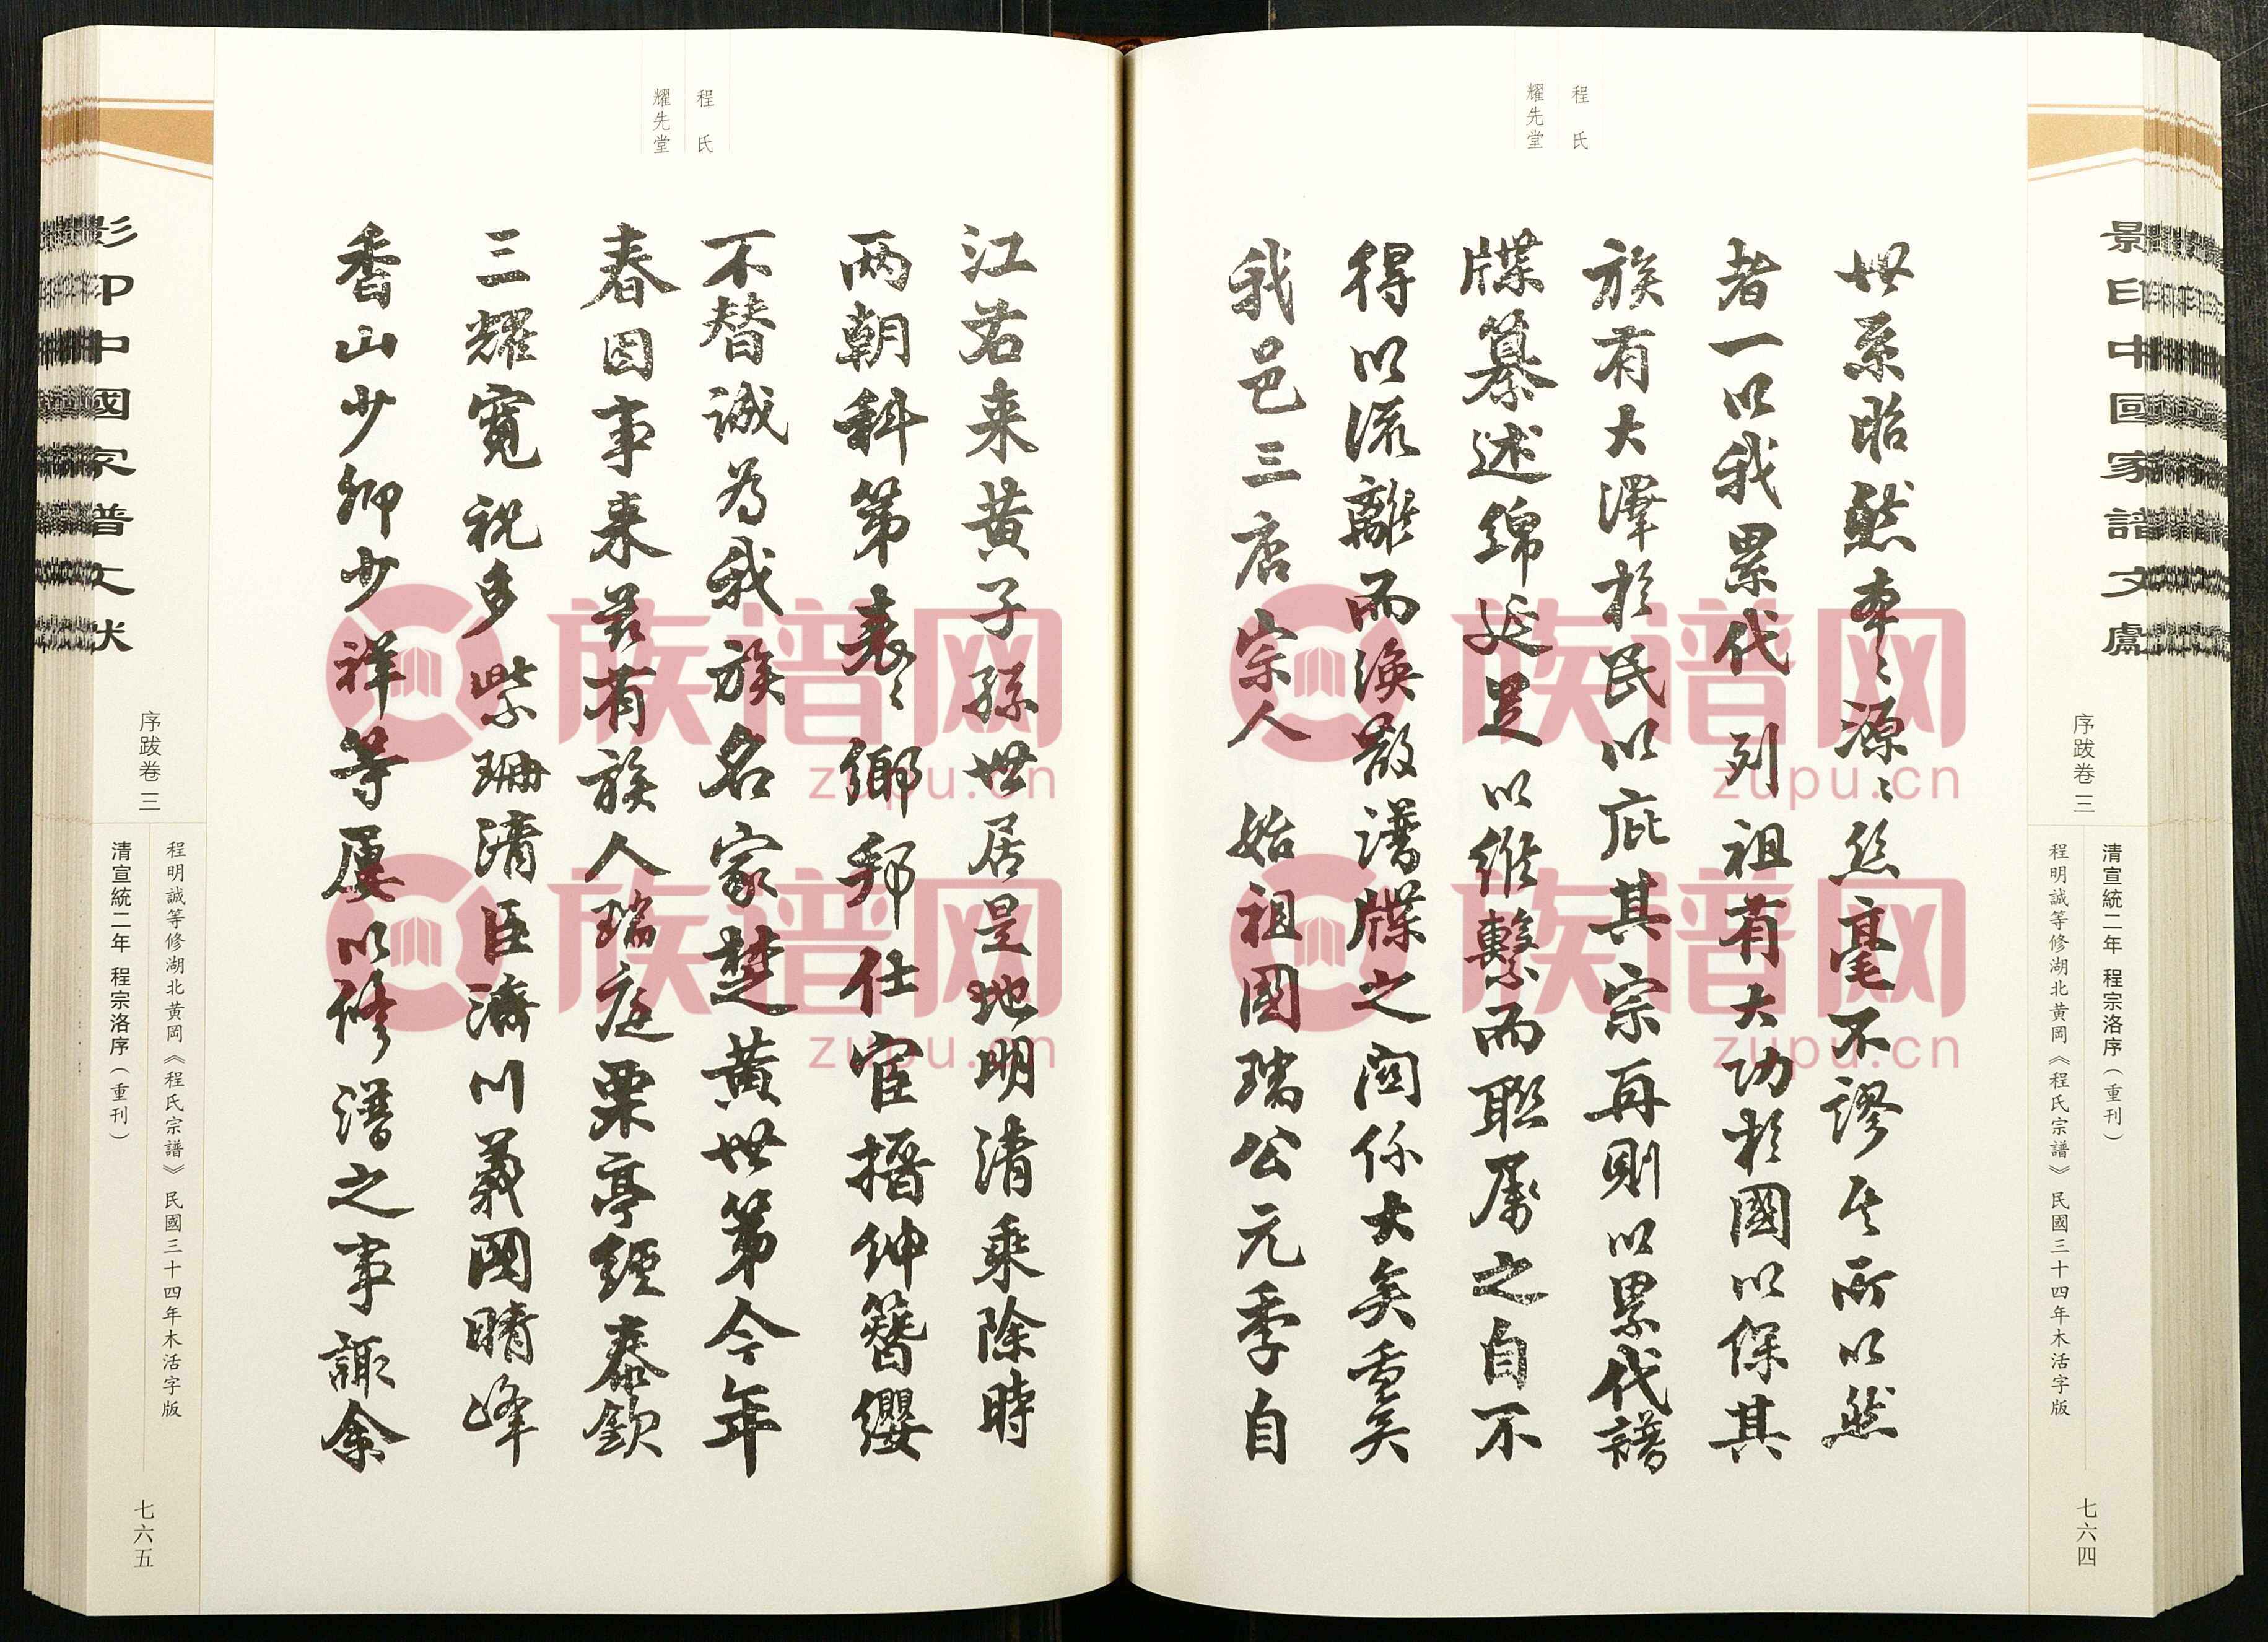 景印中國家譜文處
序跋卷三
清宣統二年 程宗洛序（重刊）
程明誠等修湖北黃岡《程氏宗譜》 民國三十四年木活字版
七六四
程氏
耀先堂
世系昭然本〻源〻丝毫不謬其所以然
者一以我累代列祖有大功於國以保其
族有大澤於民以庇其宗再則以累代譜
牒纂述綿延足以維繫而聯屬之自不
得以流離而渙散譜牒之関係大矣重矣
我邑三店宗人始祖國瑞公元季自
江右来黄子孫世居是地明清乘除時
两朝科第袁〻鄉邦仕宦搢绅簪纓
不替誠為我族名家楚黄世第今年
春因事来兹有族人瑞庭栗亭經泰欽
三耀寬祝多紫珊清臣濟川義國晴峰
香山少卿少祥等屢以修譜之事諏余
程氏
耀先堂
影印中國家譜文狀
序跋卷三
程明誠等修湖北黃岡《程氏宗譜》 民國三十四年木活字版
清宣統二年 程宗洛序（重刊）
七六五
族谱网
zupu.cn
族谱网
zupu.cn
族谱网
zupu.cn
族谱网
zupu.cn